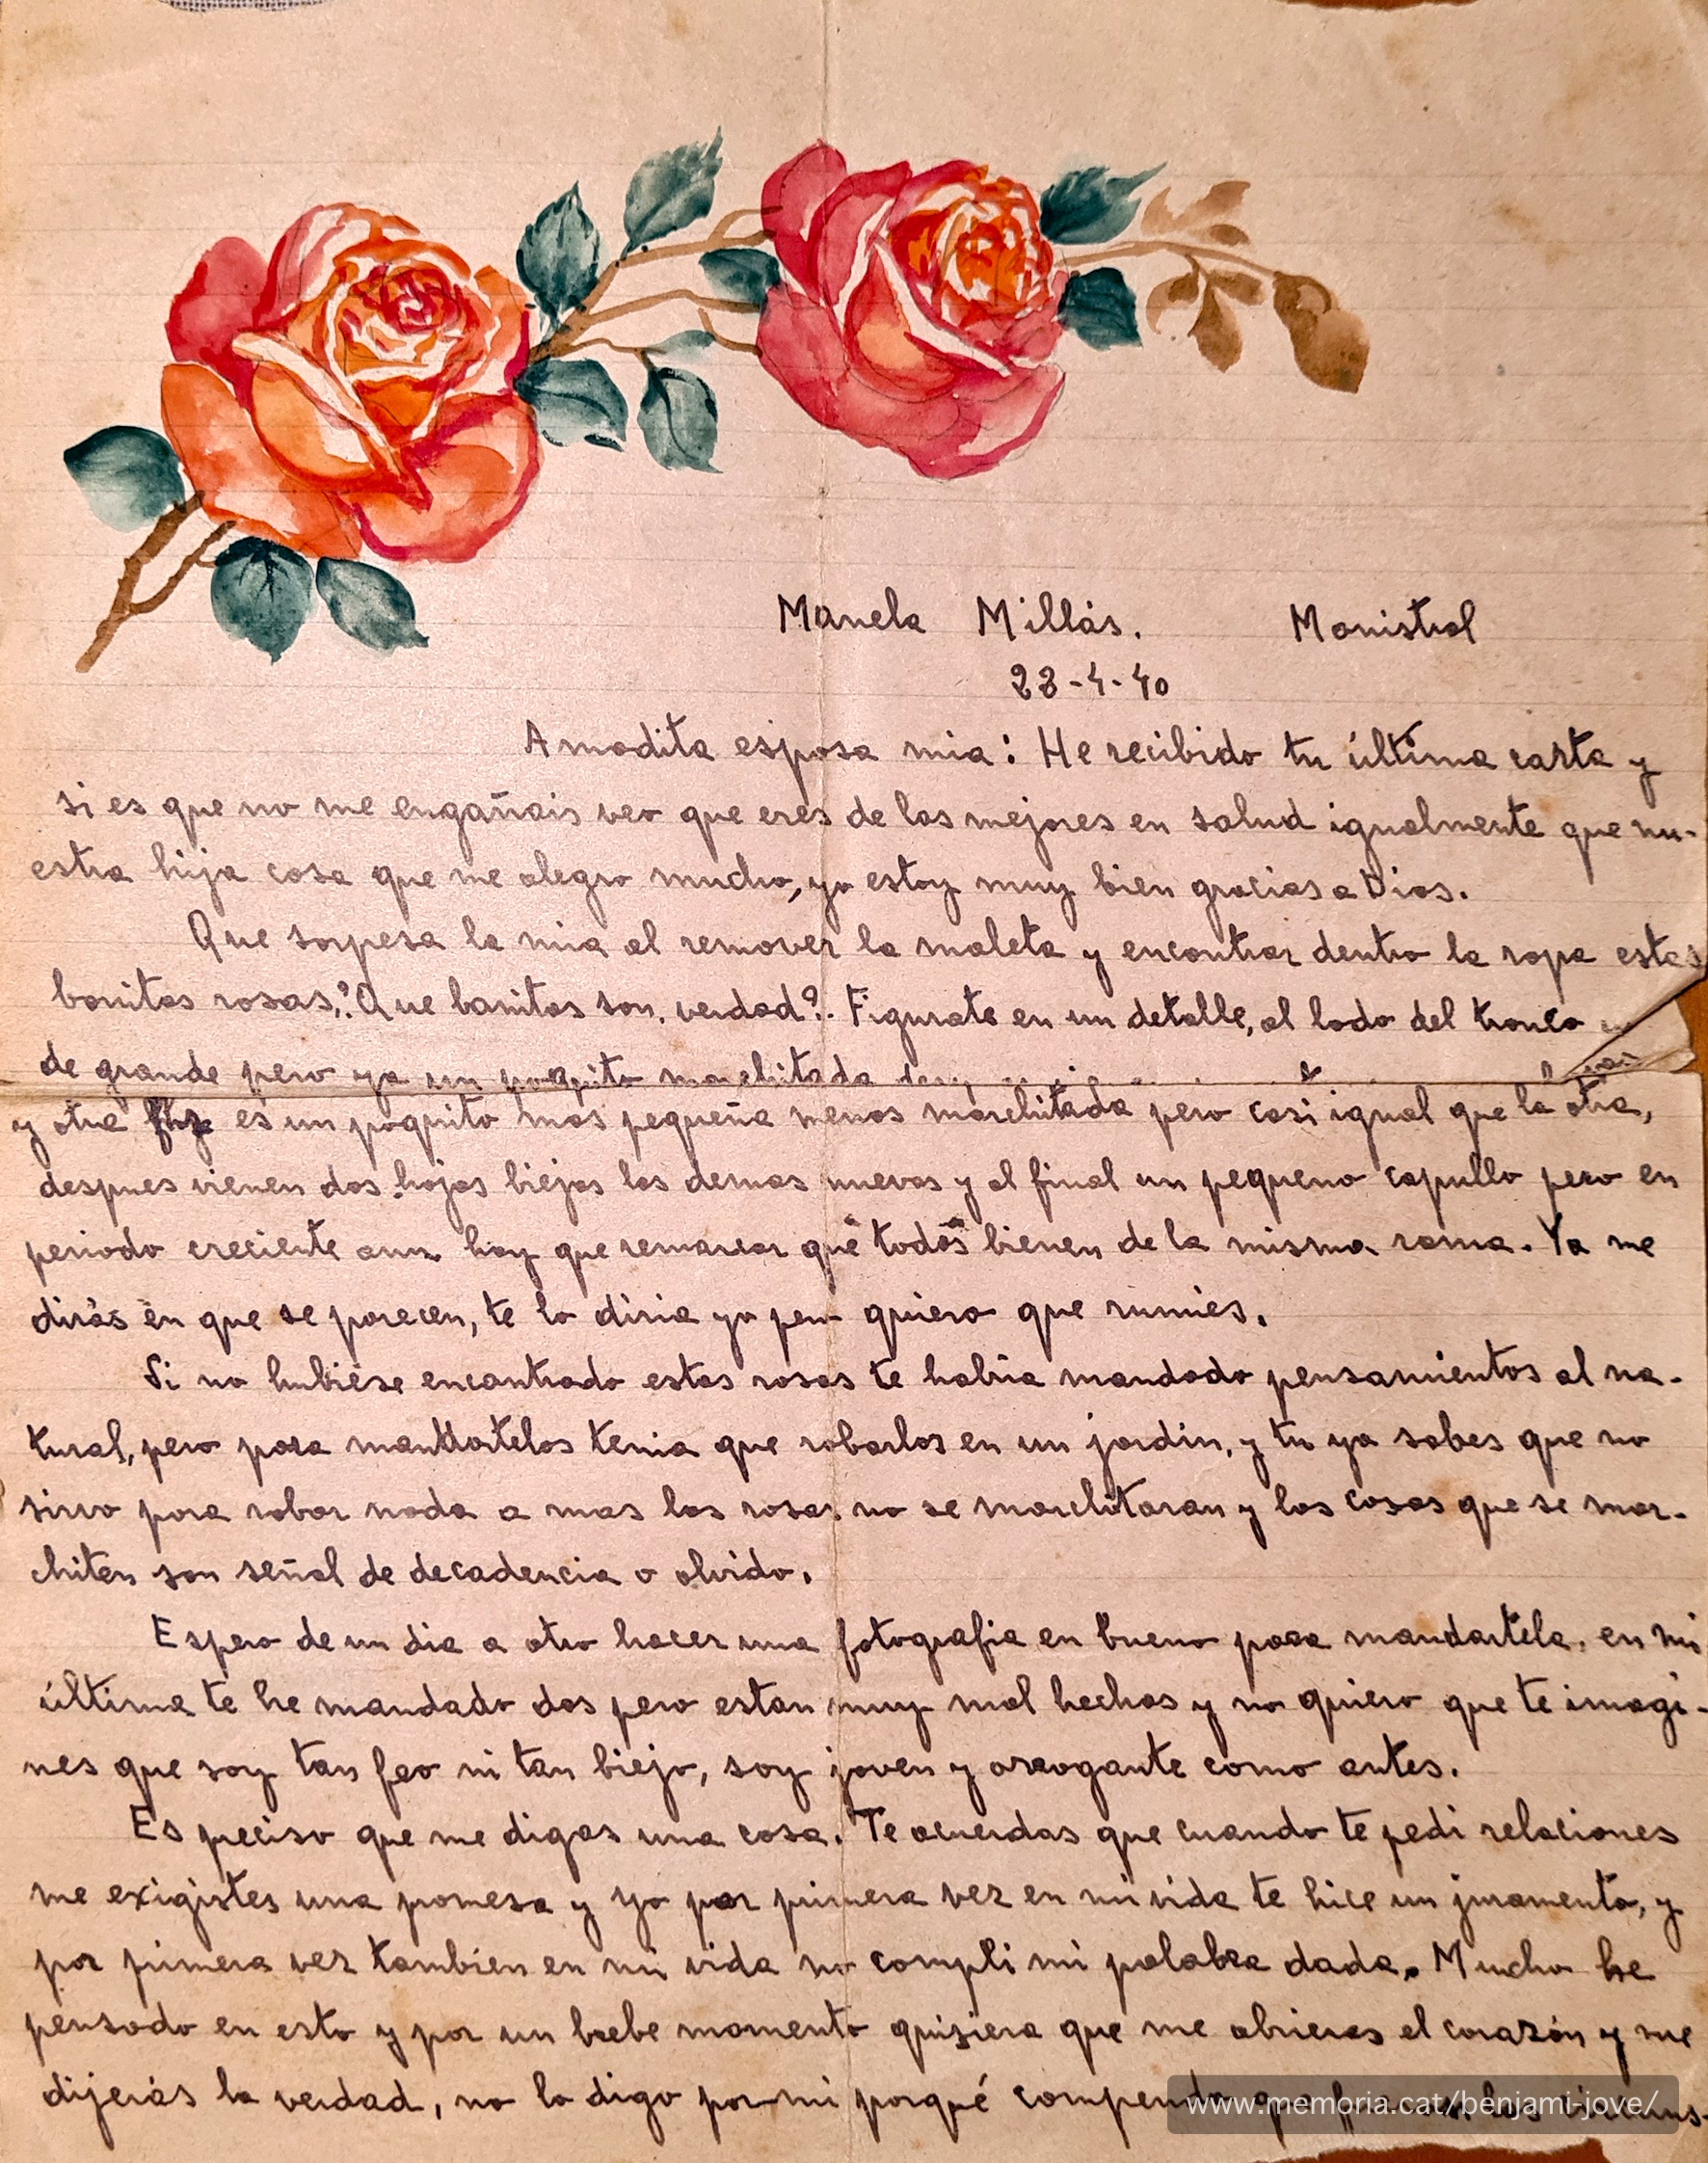 Manela Millás. Monistrol
28-4-40
Amadita esposa mia: He recibido tu última carta y
si es que no me engañais veo que eres de las mejores en salud igualmente que nu-
estra hija cosa que me alegro mucho, yo estoy muy bien gracias a Dios.
Que sorpesa la mia al remover la maleta y encontrar dentro la ropa estas
bonitas rosas,? Que banitas son, verdad?. Figurate en un detalle, al lado del tronco
de grande pero ya un poquito marchitada
y otra es un poquito mas pequeña menos marchitada pero casi igual que la otra,
despues vienen dos hojas biejas las demas nuevas y al final un pequeno capullo pero en
periodo creciente aun hay que remarcar que todos bienen de la misma rama. Ya me
dirás en que se parecen, te lo diria yo pero quiero que rumies.
Si no hubiése encontrado estas rosas te habria mandado pensamientos al na-
tural, pero para mandartelos tenia que robarlos en un jardin, y tu ya sabes que no
sirvo para robar nada a mas las rosas no se marchitaran y las cosas que se mar-
chiten son señal de decadencia o olvido.
Espero de un dia a otro hacer una fotografia en bueno para mandartela. en mi
última te he mandado dos pero estan muy mal hechas y no quiero que te imagi-
nes que soy tan feo ni tan biejo, soy joven y arrogante como antes.
Es preciso que me digas una cosa. Te acuerdas que cuando te pedi relaciones
me exigistes una promesa y yo por primera vez en mi vida te hice un juramento, y
por primera vez tambien en mi vida no compli mi palabra dada. Mucho he
pensado en esto y por un brebe momento quisiera que me abrieras el corazón y me
dijerás la verdad, no lo digo por mi porqué comprendo que
www.memoria.cat/benjami-jove/